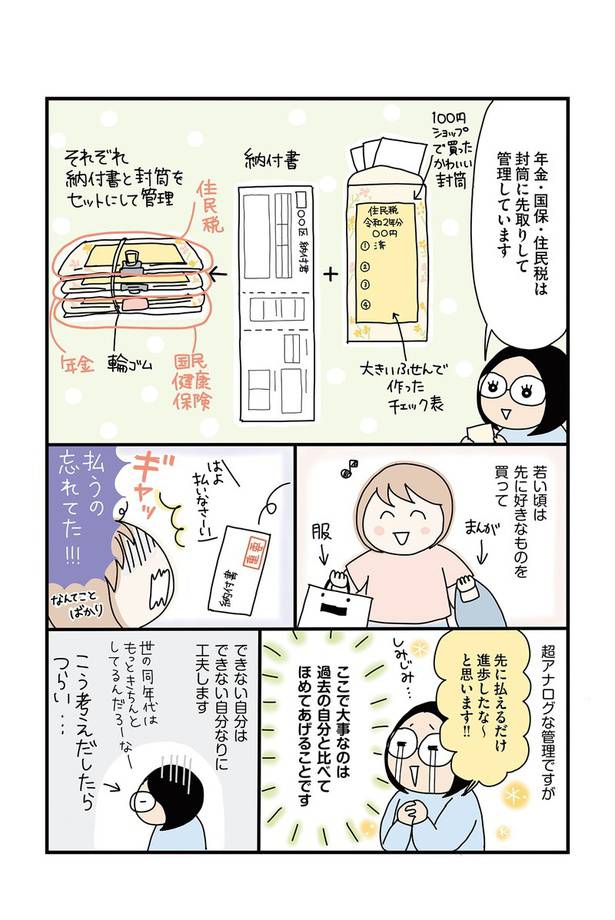 年金・国保・住民税は
封筒に先取りして
管理しています
100円
ショップ
で買った
かわいい
封筒
住民税
令和2年分
〇〇円
① 済
②
③
④
大きいふせんで
作った
チェック表
+
納付書
〇〇区 納付書
それぞれ
納付書と封筒を
セットにして管理
住民税
年金
輪ゴム
国民
健康
保険
若い頃は
先に好きなものを
買って
まんが
服
はよ
払いなさーい
重要
ギャッ
払うの
忘れてた!!!
なんてこと
ばかり
超アナログな管理ですが
先に払えるだけ
進歩したな〜
と思います!!
しみじみ…
ここで大事なのは
過去の自分と比べて
ほめてあげることです
できない自分は
できない自分なりに
工夫します
世の同年代は
もっときちんと
してるんだろーなー
こう考えだしたら
つらい…